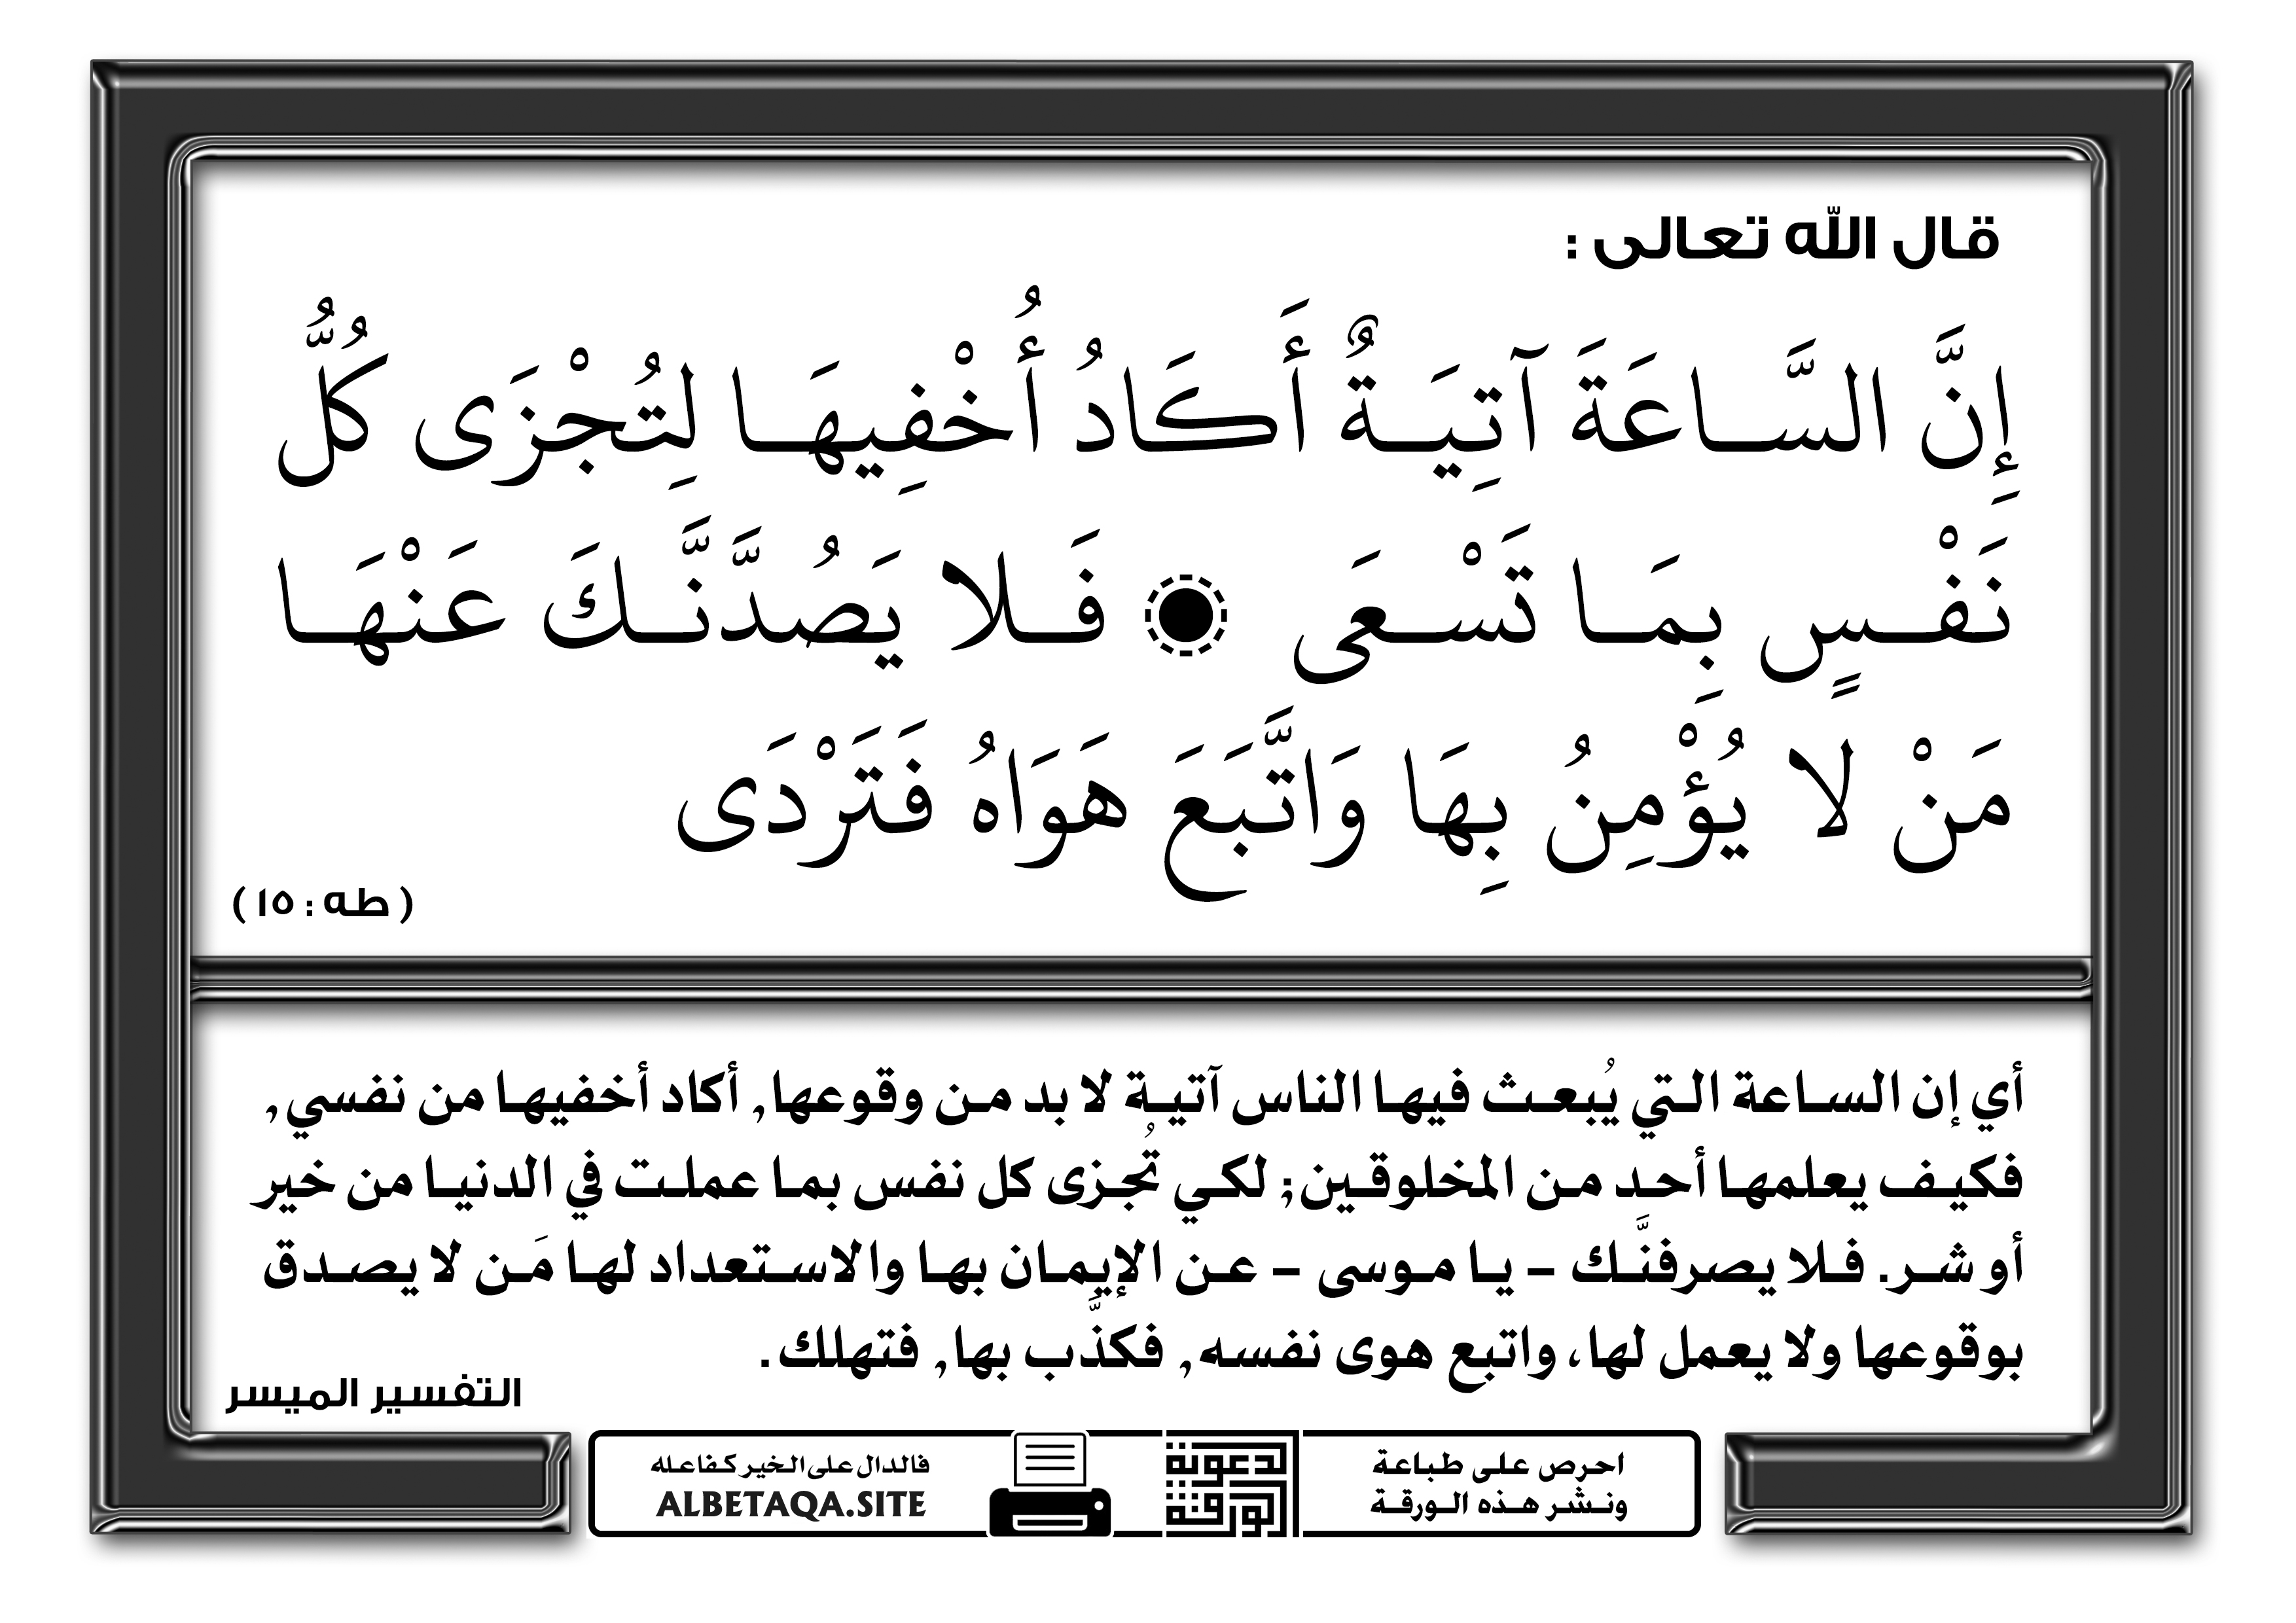 قال الله تعالى :
إِنَّ السَّاعَةَ آتِيَةٌ أَكَادُ أُخْفِيهَا لِتُجْزَى كُلُّ
نَفْسٍ بِمَا تَسْعَى ۝ فَلا يَصُدَّنَّكَ عَنْهَا
مَنْ لا يُؤْمِنُ بِهَا وَاتَّبَعَ هَوَاهُ فَتَرْدَى
( طه : ١٥ )
أي إن الساعة التي يُبعث فيها الناس آتية لا بد من وقوعها, أكاد أخفيها من نفسي,
فكيف يعلمها أحد من المخلوقين; لكي تُجزى كل نفس بما عملت في الدنيا من خير
أو شر. فلا يصرفنَّك – يا موسى – عن الإيمان بها والاستعداد لها مَن لا يصدق
بوقوعها ولا يعمل لها، واتبع هوى نفسه, فكذَّب بها, فتهلك.
التفسير الميسر
احرص على طباعة
ونشر هذه الورقة
الورقة الدعوية
فالدال على الخير كفاعله
ALBETAQA.SITE